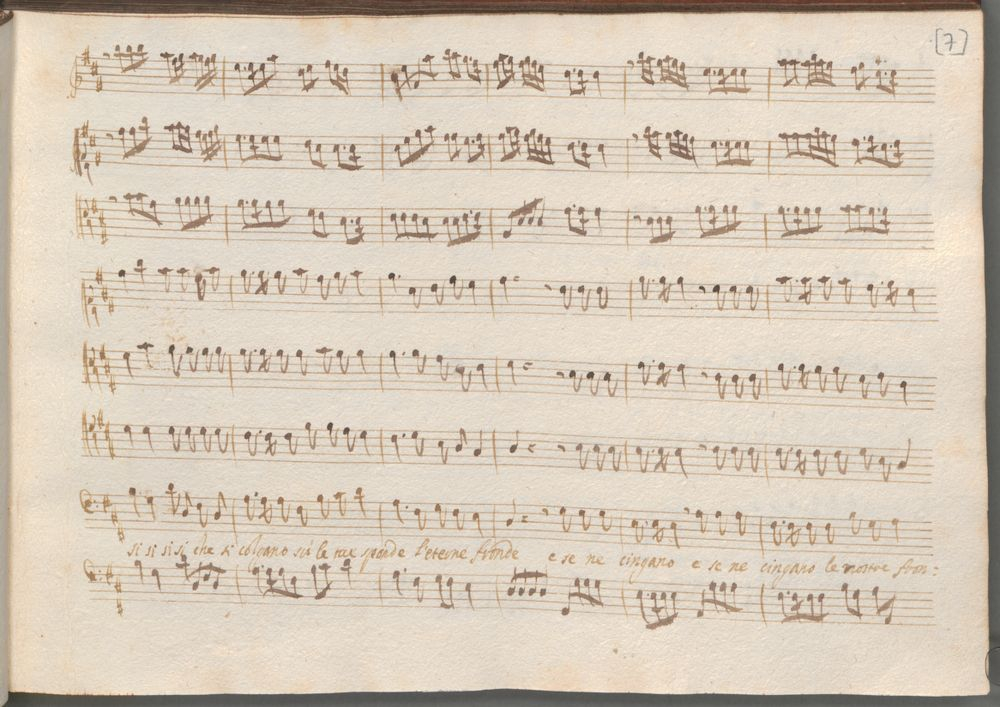 [7]
si si si si che si colgano sù le tue sponde l'eterne fronde e se ne cingano e se ne cingano le nostre fron: